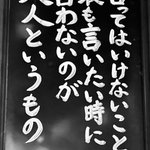 言ってはいけないこと
最も言いたい時に
言わないのが
大人というもの